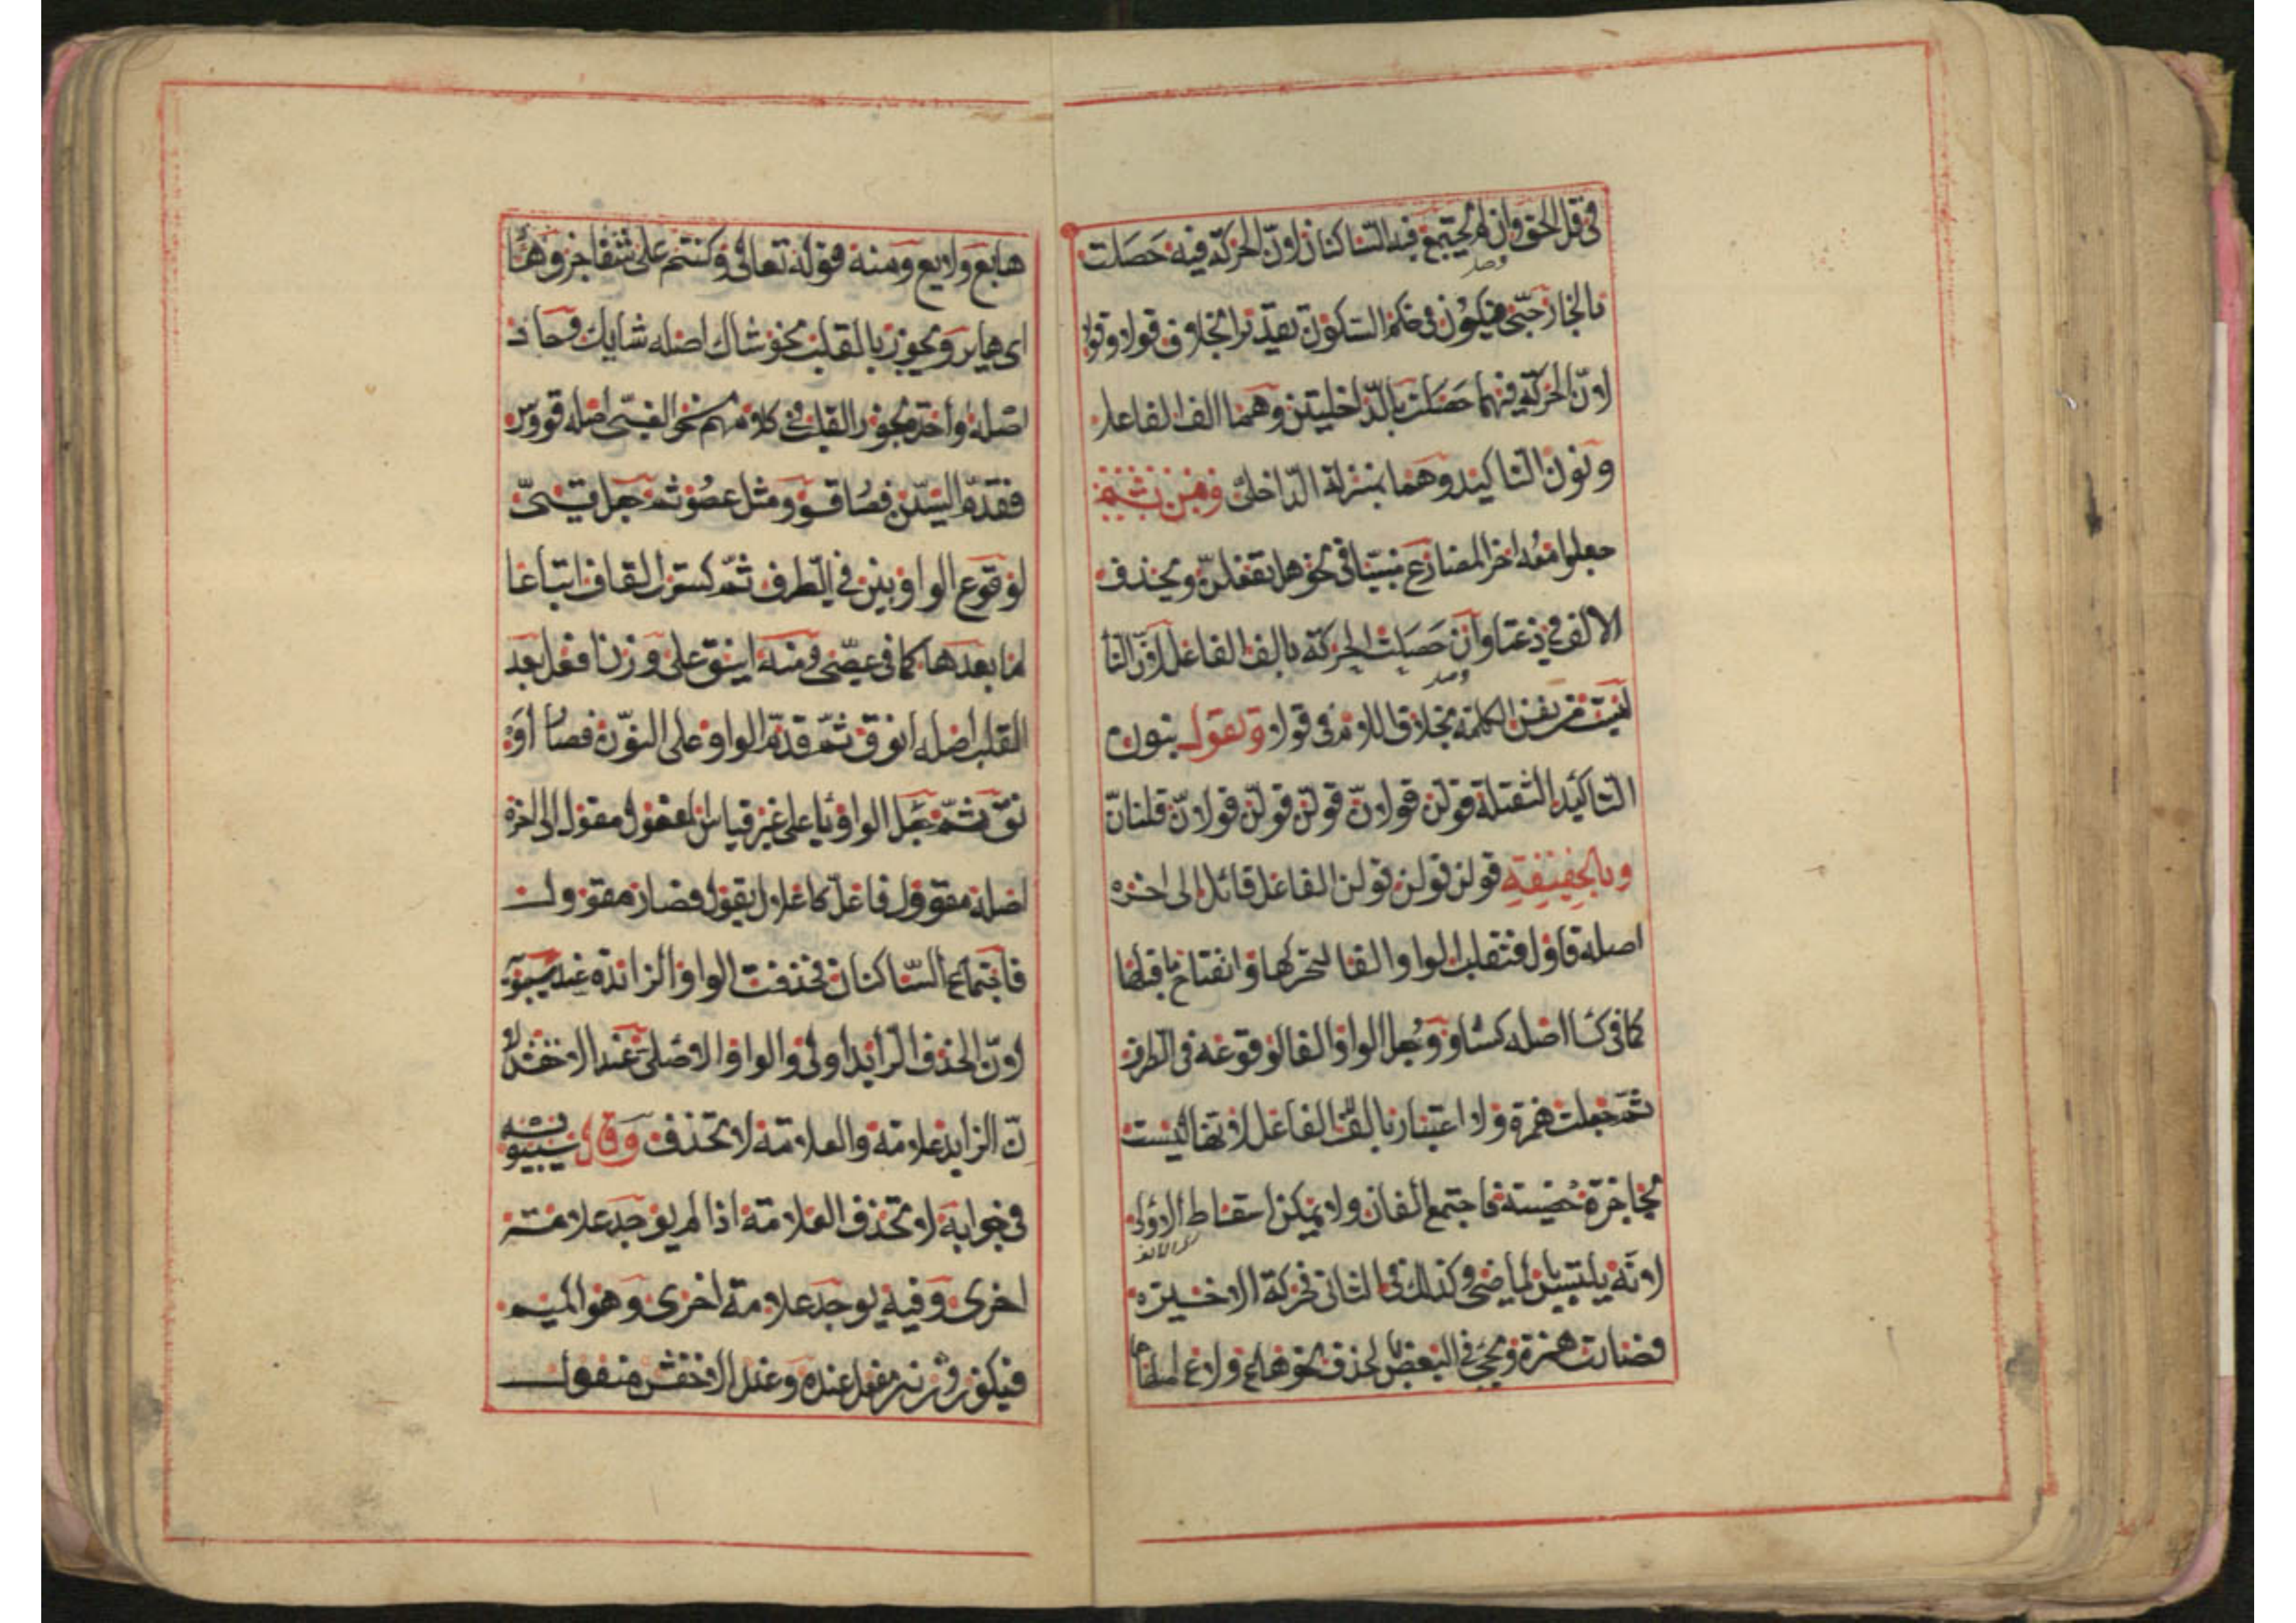 فى قل الحق وان لم يجتمع فيه الساكنان لان الحركة فيه حصلت
بالخارجى فيكون فى حكم السكون تقديرا بخلاف قولا وقولن
لان الحركة فيهما حصلت بالداخليتين وهما الف الفاعل
ونون التاكيد وهما بمنزلة الداخلى ومن ثم
جعلوا معه اخر المضارع مبنيا فى نحو هل تفعلن ويحذف
الالف فى دعتا وان حصلت الحركة بالف الفاعل لان التا
ليست من نفس الكلمة بخلاف اللام فى قولا وتقول بنون
التاكيد الثقيلة قولن قولان قولن قولن قولان قلنان
وبالخفيفة قولن قولن قولن الفاعل قائل الى اخره
اصله قاول فتقلب الواو الفا لتحركها وانفتاح ما قبلها
كما فى كسا اصله كساو وجعل الواو الفا لوقوعه فى الطرف
ثم جعلت همزة ولا اعتبار بالف الفاعل لانها ليست
بحاجزة حصينة فاجتمع الفان ولا يمكن اسقاط الاولى
لانه يلتبس بالماضى وكذلك فى الثانى فحركة الاخيرة
فصارت همزة ويجى فى البعض بالحذف نحو هاع ولاع اصلها
هايع ولايع ومنه قوله تعالى وكنتم على شفا جرف هار
اى هاير ويجوز بالقلب نحو شاك اصله شايك وحاد
اصله واحد ويجوز القلب فى كلامهم نحو القسى اصله قووس
فقدم السين فصار قسوو مثل عصوو ثم جعل قسى
لوقوع الواوين فى الطرف ثم كسر القاف اتباعا
لما بعدها كما فى عصى ومنه اينق على وزن افعل بعد
القلب اصله انوق ثم قدم الواو على النون فصار او
نق ثم جعل الواو يا على غير قياس المفعول مقول الى اخره
اصله مقوول فاعل كاعلال يقول فصار مقوول
فاجتمع الساكنان فحذفت الواو الزائدة عند سيبويه
لان الحذف الزايد اولى والواو الاصلى عند الاخفش لا
ن الزايد علامة والعلامة لا تحذف وقال سيبويه
فى جوابه لا تحذف العلامة اذا لم يوجد علامة
اخرى وفيه يوجد علامة اخرى وهو الميم
فيكون وزنه مفعل عنده وعند الاخفش مفول